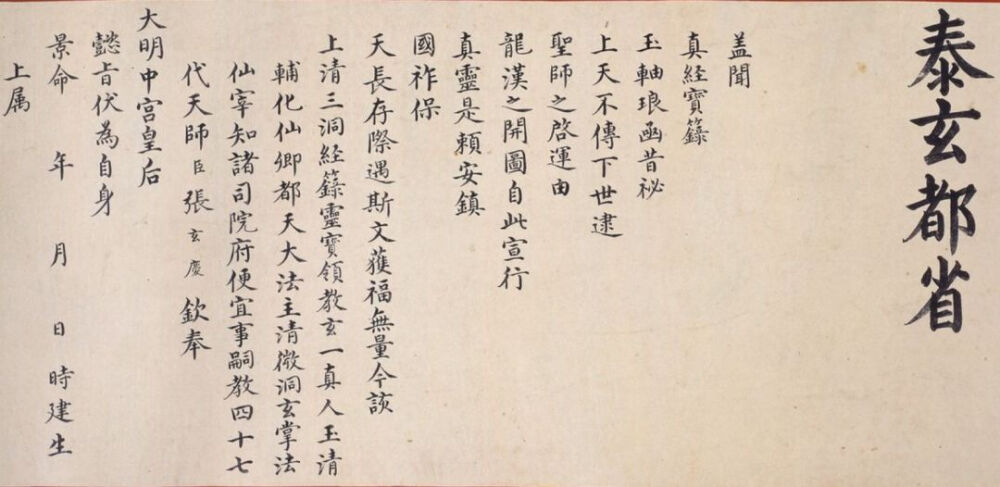 泰玄都省
盖聞
真経寳籙
玉軸琅函昔祕
上天不傳下世逮
聖師之啓運由
龍漢之開圖自此宣行
真靈是頼安鎮
國祚保
天長存際遇斯文獲福無量今該
上清三洞経籙靈寳領教玄一真人玉清
輔化仙卿都天大法主清微洞玄掌法
仙宰知諸司院府便宜事嗣教四十七
代天師臣張玄慶欽奉
大明中宫皇后
懿㫖伏為自身
景命 年 月 日時建生
上属